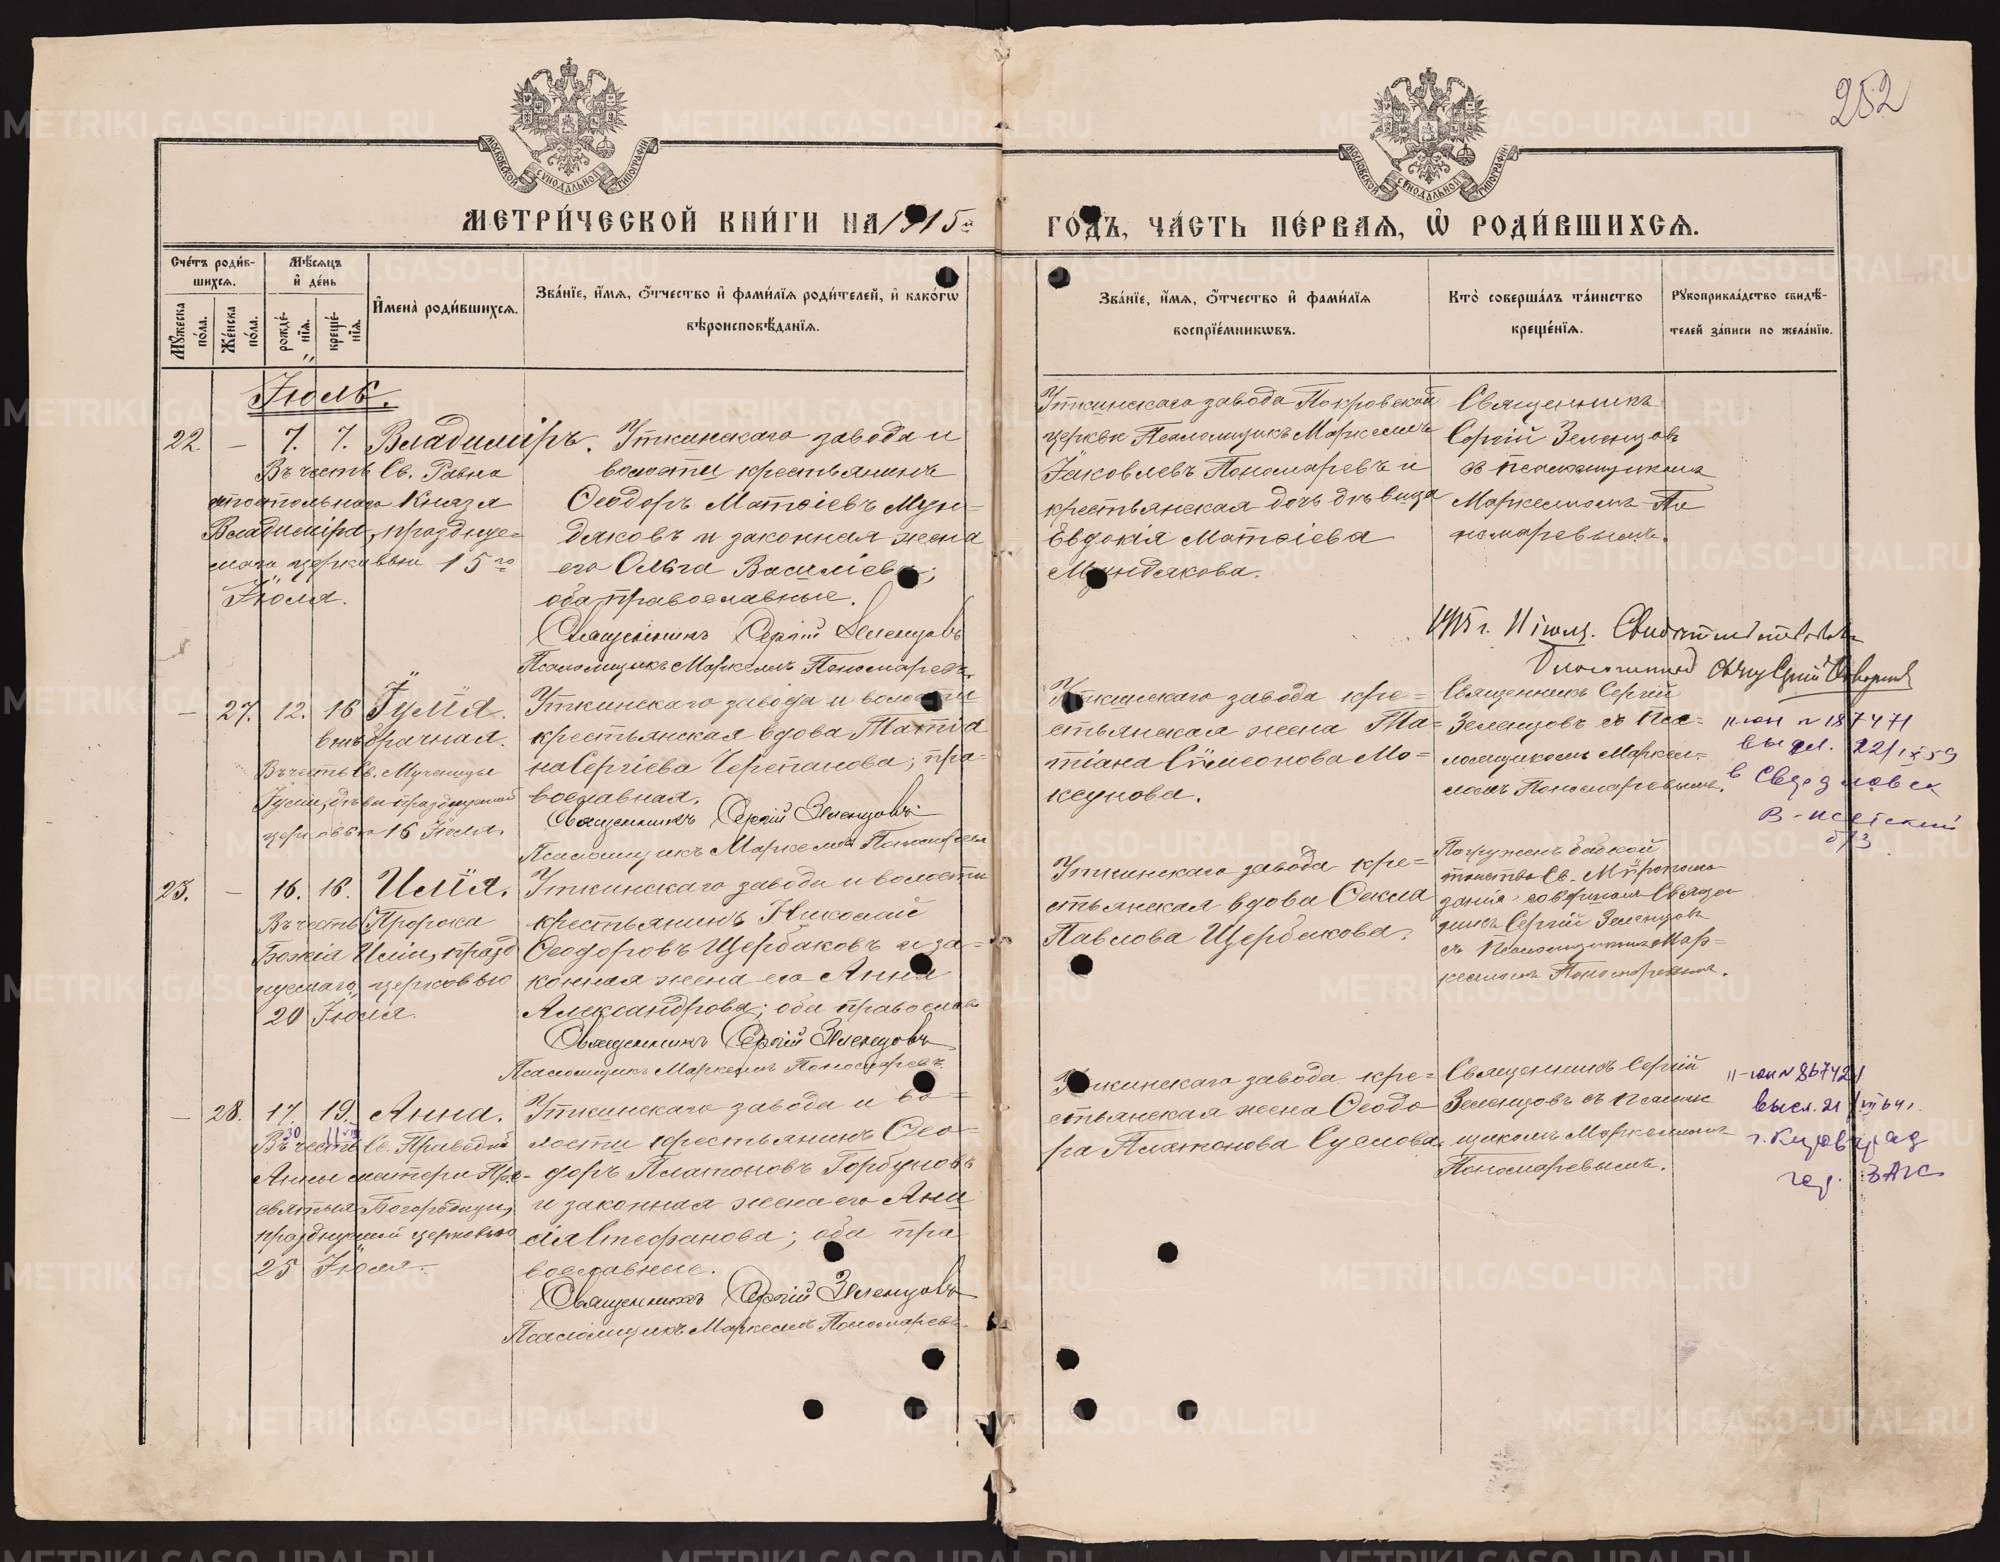 252
МОСКОВСКОЙ СѴНОДАЛЬНОЙ ТИПОГРАФІИ
МОСКОВСКОЙ СѴНОДАЛЬНОЙ ТИПОГРАФІИ
МЕТРИ́ЧЕСКОЙ КНИ́ГИ НА 1915
ГО́ДЪ, ЧА́СТЬ ПЕ́РВАѦ, Ѡ РОДИ́ВШИХСѦ.
Сче́тъ роди́в-
шихсѧ.
Мꙋжеска по́ла.
Же́нска по́ла.
Мѣ́сѧцъ
и де́нь
рожде́-
нїѧ.
креще́-
нїѧ.
Имена̀ роди́вшихсѧ.
Зва́нїе, и́мѧ, о́тчество и фами́лїѧ роди́телей, и како́гѡ
вѣроисповѣ́данїѧ.
Зва́нїе, и́мѧ, о́тчество и фами́лїѧ
воспрїе́мникѡвъ.
Кто̀ соверша́лъ та́инство
креще́нїѧ.
Рꙋкоприкла́дство свидѣ́-
телей за́писи по жела́нїю.
Іюль.
22. — 7. 7. Владиміръ.
Въ честь Св. Равно
апостольнаго Князя
Владиміра, праздnуе-
маго церковью 15го
Іюля.
Уткинскаго завода и
волости крестьянинъ
Ѳеодоръ Матѳіевъ Мун-
дяковъ и законная жена
его Ольга Василіева;
оба православные.
Священникъ Сергій Зеленцовъ
Псаломщикъ Маркеллъ Пономаревъ.
Уткинскаго завода Покровской
церкви Псаломщикъ Маркеллъ
Іаковлевъ Пономаревъ и
крестьянская дочь дѣвица
Евдокія Матѳіева
Мундякова.
Священникъ
Сергій Зеленцовъ
съ псаломщикомъ
Маркелломъ По
номаревымъ.
1915 г. 11 іюля.
— 27. 12. 16 Іулія.
внѣбрачная.
Въ честь Св. Мученицы
Іуліи, дѣвы празднуемой
церковью 16 Іюля.
Уткинскаго завода и волости
крестьянская вдова Татіа
на Сергіева Черепанова; пра-
вославная.
Священникъ Сергій Зеленцовъ
Псаломщикъ Маркеллъ Пономаревъ
Уткинскаго завода кре-
стьянская жена Та-
тіана Сѵмеонова Мо-
кеунова.
Священникъ Сергій
Зеленцовъ съ Пса-
ломщикомъ Маркел-
ломъ Пономаревымъ.
II-юн № 187471
выдан. 22/IX 59
в Свердловск
В-Исетский
б/з
23. — 16. 16. Илія.
Въ честь Пророка
Божія Иліи, празд
нуемаго церковью
20 Іюля.
Уткинскаго завода и волости
крестьянинъ Николай
Ѳеодоровъ Щербаковъ и за-
конная жена его Анна
Александрова; оба православ
Священникъ Сергій Зеленцовъ
Псаломщикъ Маркеллъ Пономаревъ.
Уткинскаго завода кре-
стьянская вдова Ѳекла
Павлова Щербакова.
Погруженъ бабкой
таинство Св. Мѵропома-
занія совершилъ Священ
никъ Сергій Зеленцовъ
съ Псаломщикомъ Мар-
келломъ Пономаревымъ.
— 28. 17. 19. Анна.
30 11 VII
Въ честь Св. Праведной
Анны матери Пре-
святыя Богородицы,
празднуемой церковью
25 Іюля.
Уткинскаго завода и во-
лости крестьянинъ Ѳео-
доръ Платоновъ Горбуновъ
и законная жена его Ани
сія Стефанова; оба пра
вославные.
Священникъ Сергій Зеленцовъ
Псаломщикъ Маркеллъ Пономаревъ.
Уткинскаго завода кре-
стьянская жена Ѳеодо
ра Платонова Суслова.
Священникъ Сергій
Зеленцовъ съ псалом
щикомъ Маркелломъ
Пономаревымъ.
II-юн № 867421
высл. 21/VII 64 г.
г. Кировград
гор. ЗАГС
METRIKI.GASO-URAL.RU